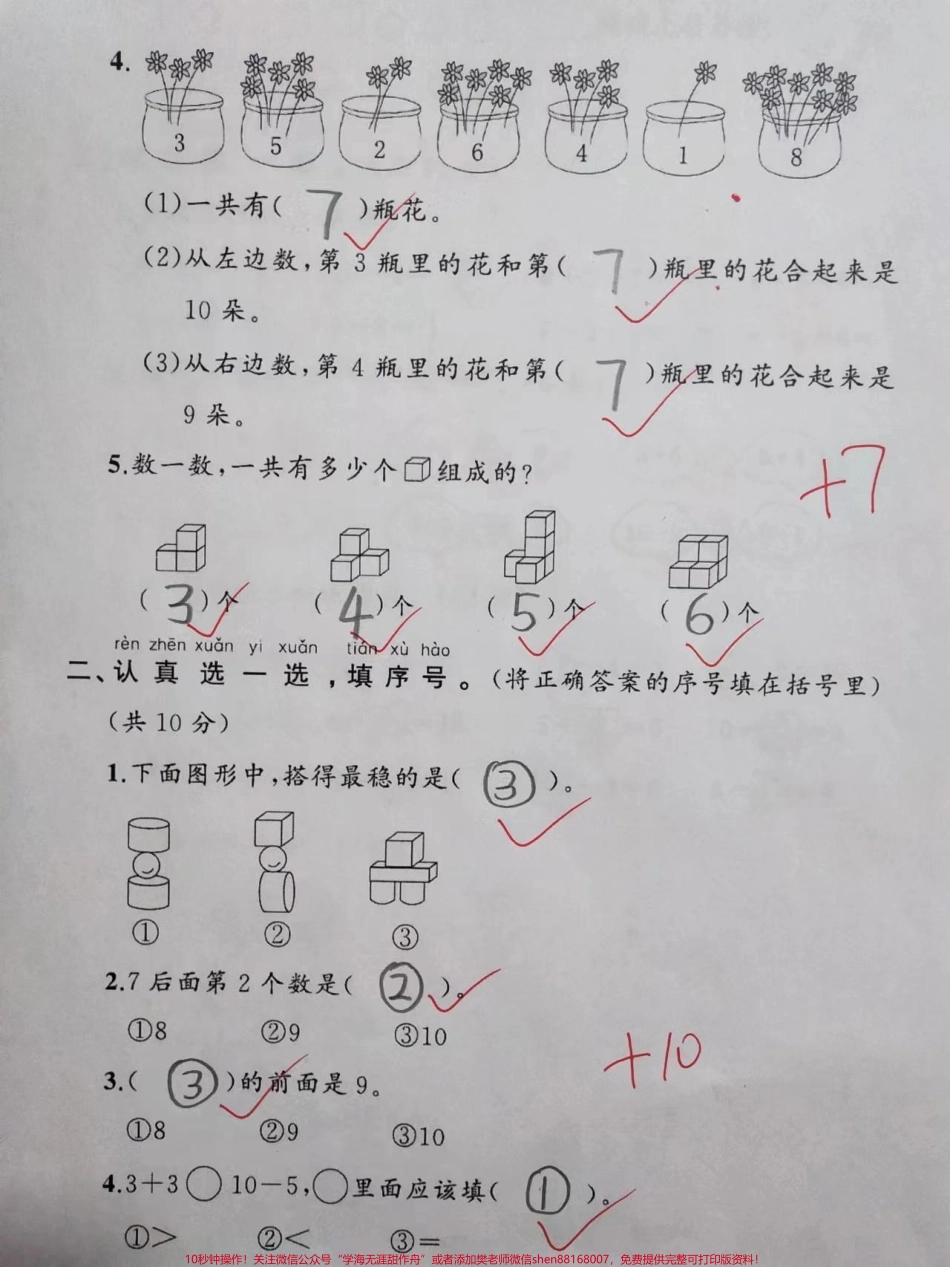 4.
3 5 2 6 4 1 8
(1)一共有( 7 )瓶花。
(2)从左边数,第 3 瓶里的花和第( 7 )瓶里的花合起来是
10 朵。
(3)从右边数,第 4 瓶里的花和第( 7 )瓶里的花合起来是
9 朵。
5.数一数,一共有多少个组成的?
+7
( 3 )个 ( 4 )个 ( 5 )个 ( 6 )个
rèn zhēn xuǎn yi xuǎn tián xù hào
二、认真选一选,填序号。(将正确答案的序号填在括号里)
(共 10 分)
1.下面图形中,搭得最稳的是( ③ )。
① ② ③
2.7 后面第 2 个数是( ② )。
①8 ②9 ③10
+10
3.( ③ )的前面是 9。
①8 ②9 ③10
4.3+3○10-5,○里面应该填( ① )。
①> ②< ③=
10秒钟操作!关注微信公众号“学海无涯甜作舟”或者添加樊老师微信shen88168007,免费提供完整可打印版资料!